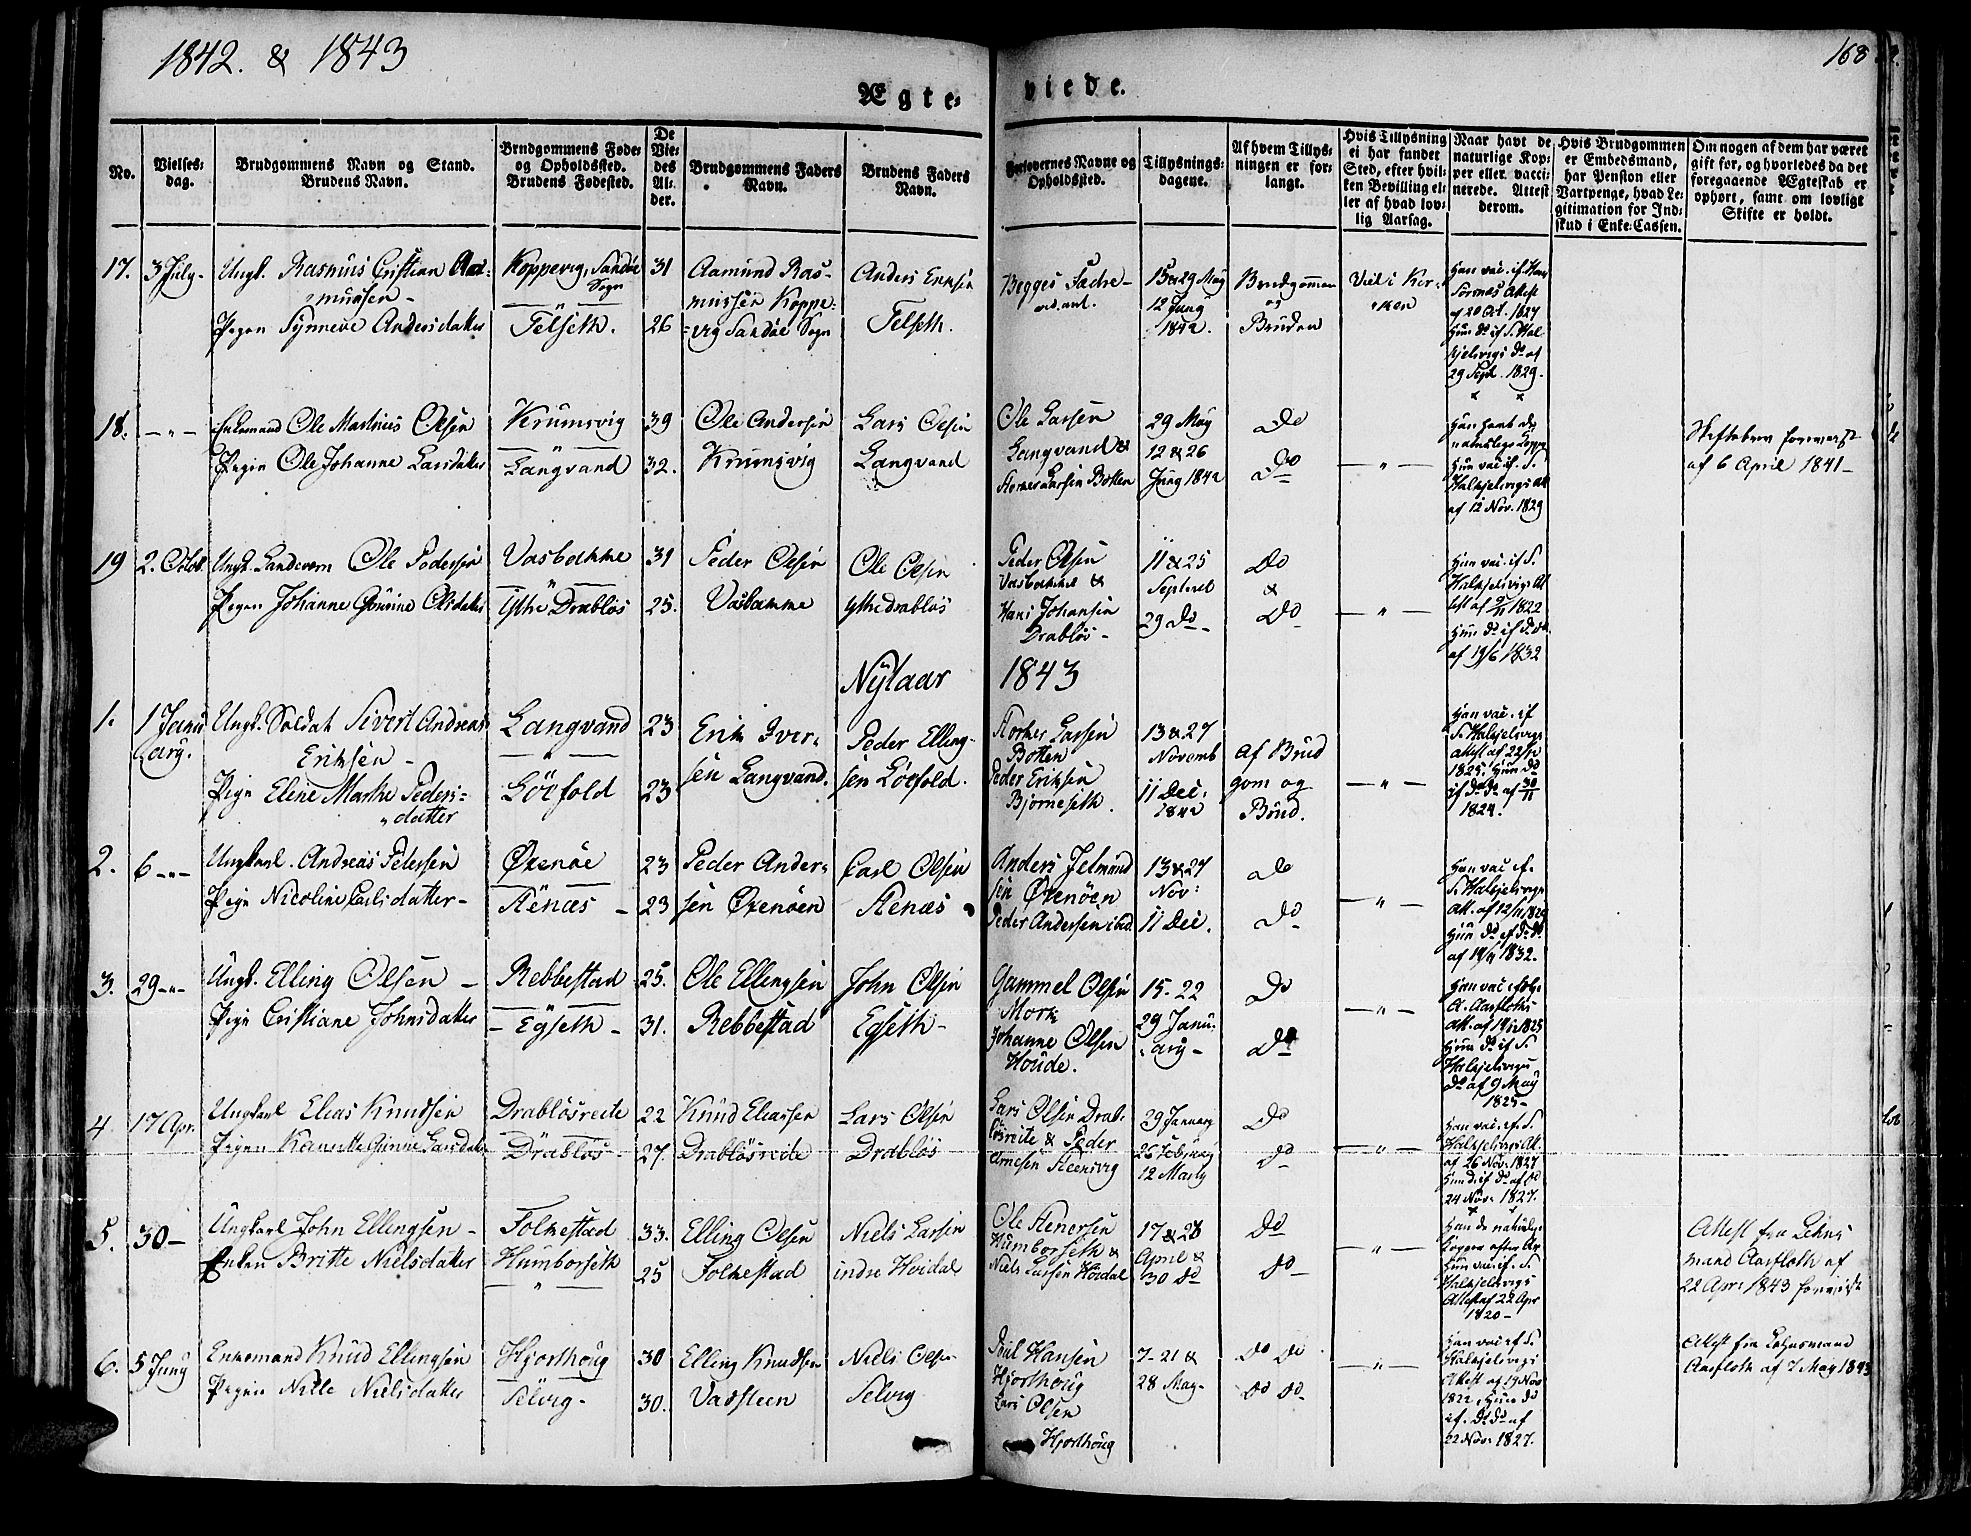 1842. & 1843
168
Ægte-
viede.
No.
Vielses-
dag.
Brudgommens Navn og Stand.
Brudens Navn.
Brudgommens Føde-
og Opholdssted.
Brudens Fødested.
De
Vie-
des
Al-
der.
Brudgommens Faders
Navn.
Brudens Faders
Navn.
Forlovernes Navne og
Opholdssted.
Tillysnings-
dagene.
Af hvem Tillys-
ningen er for-
langt.
Hvis Tillysning
ei har fundet
Sted, efter hvil-
ken Bevilling el-
ler af hvad lov-
lig Aarsag.
Naar havt de
naturlige Kop-
per eller vacci-
nerede. Attest
derom.
Hvis Brudgommen
er Embedsmand,
har Pension eller
Vartpenge, hvad Le-
gitimation for Ind-
skud i Enke-Cassen.
Om nogen af dem har været
gift før, og hvorledes da det
foregaaende Ægteskab er
ophørt, samt om lovligt
Skifte er holdt.
17. 3 July - Ungk. Rasmus Cristian Aa-
munsen -
Pigen Synneve Andersdatter
Koppevig, Sandøe
Sogn
Felseth.
31
26
Aamund Ras-
mussen Koppe-
vig Sandøe Sogn
Anders
Felseth.
Begges Fædre -
15 & 29 May
12 Juny
1842.
Brudgommen
og
Bruden
Viel i Kir-
ken
Han vac. if.
Attest
af 20 Oct. 1827
Hun do if S. Hal-
kjelsvigs do af
29 Sept. 1829.
18. - " - Enkemand Ole Martinus Olsen
Pigen Ole Johanne Larsdatter
Krumsvig
Langvand
39
32.
Ole Andersen
Krumsvig
Lars Olsen
Langvand
Ole Larsen
Langvand &
Larsen Botten
29 May
12 & 26
Juny 1842
do
do
- " -
Han havt de
naturlige Koppe
Hun vac. if. S.
Halkjelsvigs Att.
af 12 Nov. 1829
Skiftebrev forevist
af 6 April 1841 -
19 2. Octob. Ungk. Landevern Ole Pedersen
Pigen Johanne Olsdatter
Vasbakke
Ytthe Drabløs
31
25.
Peder Olsen
Vasbakke
Ole Olsen
Ytthe Drabløs
Peder Olsen
Vasbakke &
Hans Johansen
Drabløs -
11 & 25
Septemb
29 do -
do
&
do
- " -
Han vac. if S.
Halkjelsvigs At-
test af 1822
Hun do if do do
af 19/6 1832
Nytaar 1843
1. 1 Janu
ary.
Ungk. Soldat Sivert Andreas
Eriksen -
Pigen Elene Marthe Peders-
datter
Langvand
- " -
Löefold
23
23
Erik Iver-
sen Langvand.
Peder Elling-
sen Löefold.
Larsen
Botten
Peder Eriksen
Bjørneseth.
13 & 27
Novemb
11 Dec.
1842
af Brud
gom og
Brud.
- " -
Han vac. if
S. Halkjelsvigs
Attest af 22/12
1825. Hun do
if do do af 30/11
1824.
2. 6 - " - Ungkarl. Andreas Petersen
Pigen Nicoline Carlsdatter -
Øxenøe
Aenæs -
23
23
Peder Ander-
sen Øxenøen
Carl Olsen
Aenæs
Anders
sen Øxenøen
Peder Andersen ibid.
13 & 27
Nov:
11 Dec.
do
do
- " -
Han vac. if.
S. Halkjelsvigs
Att. af 12/11 1829
Hun do if do do
af 1832.
3. 29 - " - Ungk. Elling Olsen -
Pigen Cristiane Johnsdatter
Rebbestad
- Egseth -
25.
31.
Ole Ellingsen
Rebbestad
John Olsen
Egseth -
Gammel Olsen
Mork
Johanne Olsen
Houde.
15 - 22
29 Janu-
ary -
do
do
- " -
Han vac. ifølge
A. Aarfloths
Att. af 1825
Hun do if S.
Halkjelsvigs
do af 9 May
1825 -
4. 17 Apr. Ungkarl Elias Knudsen
Pigen Larsdatter
Drabløsreite
Drabløs -
22
27.
Knud Eliassen
Drabløsreite
Lars Olsen
Drabløs
Lars Olsen Drab-
løsreite & Peder
Arnesen Steensvig
29 January
26 February
12 Marty
do
do
- " -
Han vac. if S.
Halkjelsvigs Att.
af 26 Nov. 1827
Hun do if do af do
24 Nov. 1827.
5. 30 - Ungkarl John Ellingsen -
Enken Britte Nielsdatter
Folkestad
Humborseth
- " -
33.
25
Elling Olsen
Folkestad
Niels Larsen
indre Høidal
Ole
Humborseth &
Niels Larsen Høidal
17 & 28
April &
30 do
do
do -
- " -
Han de naturlige
Kopper
Hun vac. if. S.
Halkjelsvigs
Attest af 22 Apr
1820 -
Attest fra Lehns
mand Aarfloth af
22 Apr. 1843 forevist
6. 5 Juny Enkemand Knud Ellingsen
Pigen Nille Nielsdatter
Hjorthoug
Selvig -
30
30.
Elling Knudsen
Vadsteen
Niels Olsen
Selvig
Poul Hansen
Hjorthoug
Lars Olsen
Hjorthoug
7 - 21 &
28 May -
do do
do do
- " -
Han vac. if S.
Halkjelsvigs
Attest af 19 Nov
1822, Hun do
if. do do af
22 Nov. 1827.
Attest fra Lehnsmand
Aarfloth af 7. May 1843